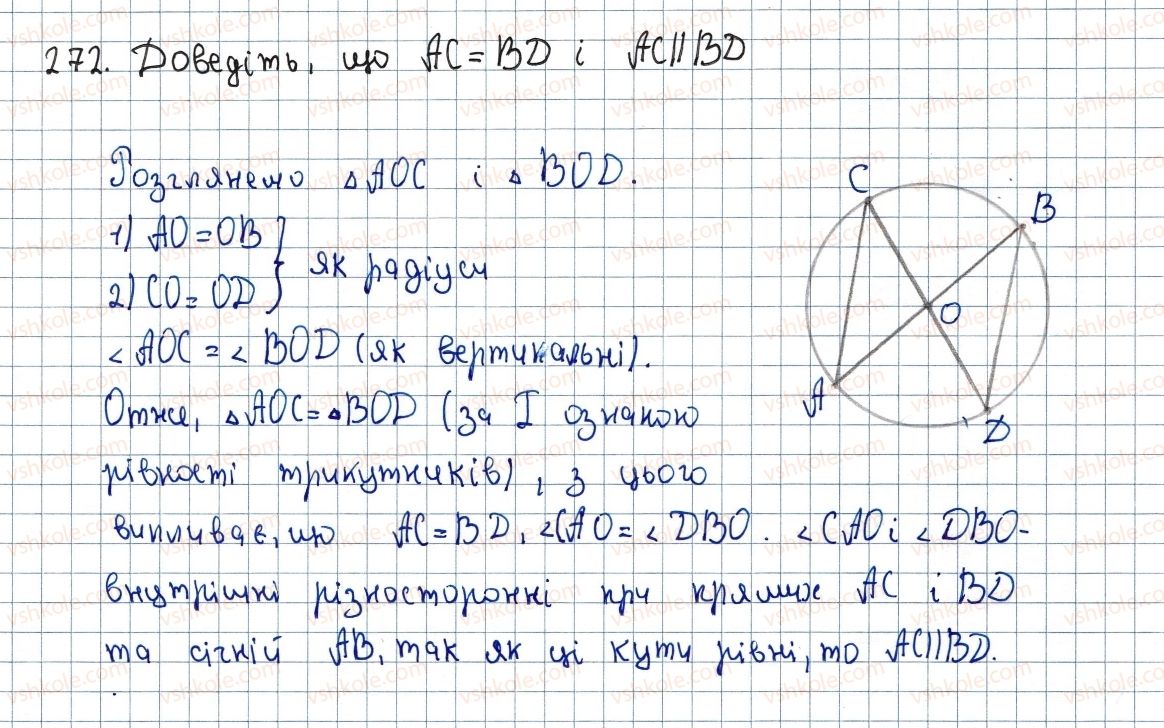 272. Доведіть, що AC = BD і AC || BD
Розглянемо △AOC і △BOD.
1) AO = OB
2) CO = OD } як радіуси
∠AOC = ∠BOD (як вертикальні).
Отже, △AOC = △BOD (за I ознакою
рівності трикутників), з цього
випливає, що AC = BD, ∠CAO = ∠DBO. ∠CAO і ∠DBO -
внутрішні різносторонні при прямих AC і BD
та січній AB, так як ці кути рівні, то AC || BD.
C
B
O
A
D
vshkole.com